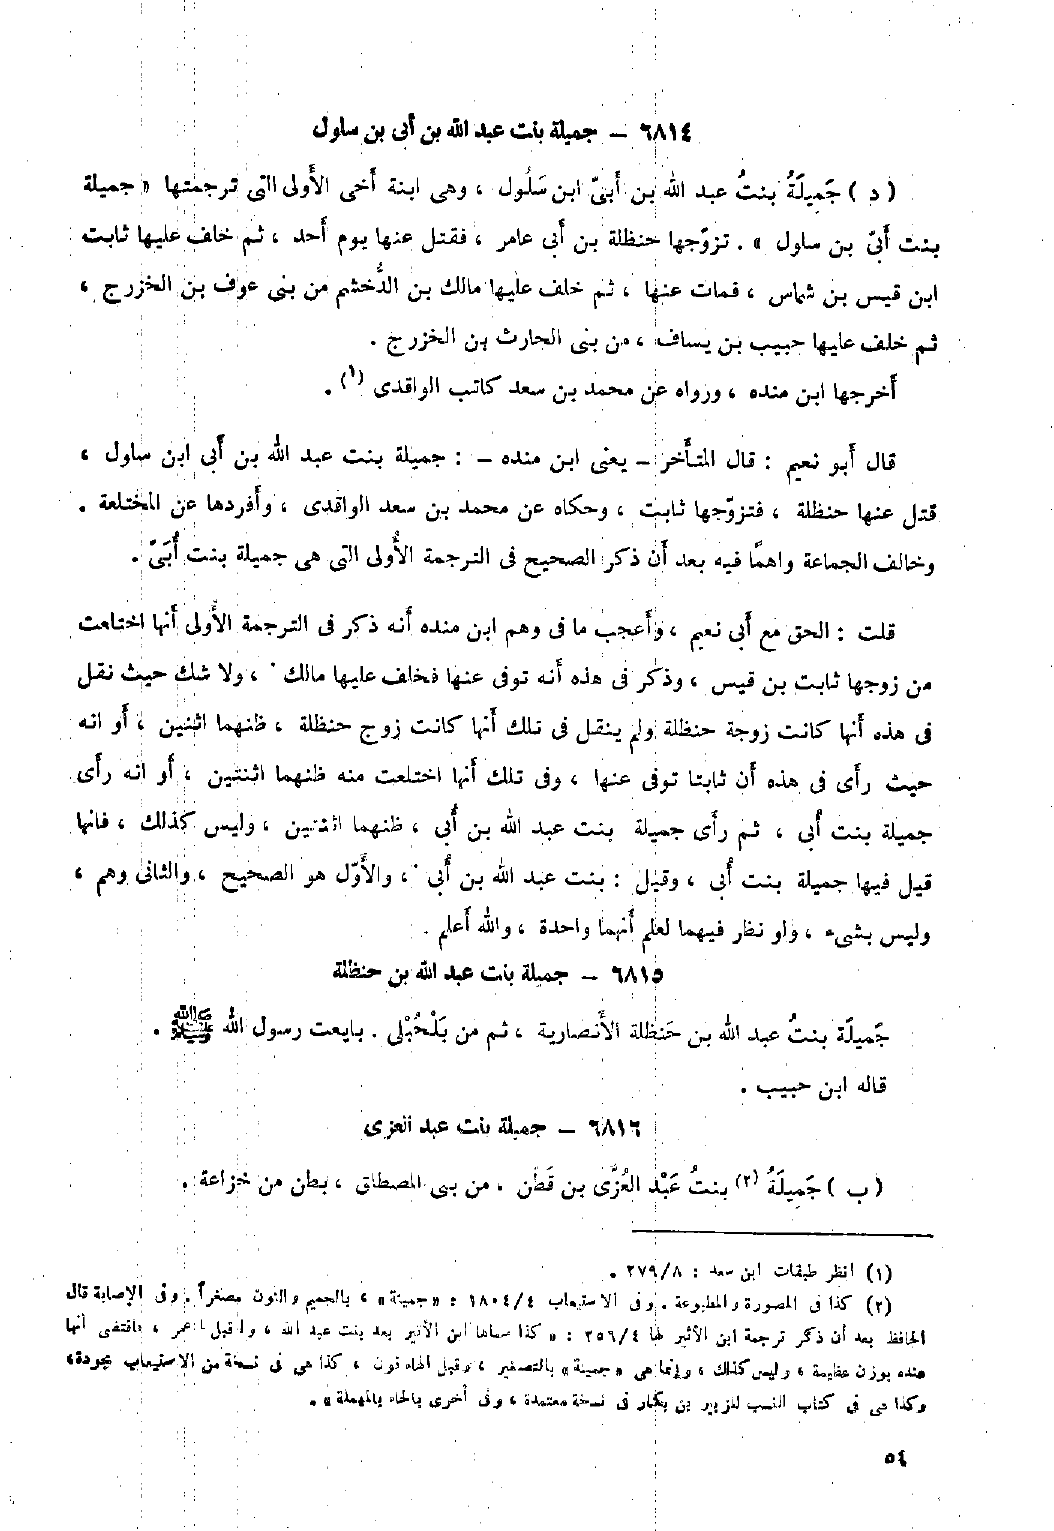 ٦٨١٤ – جميلة بنت عبد الله بن أبى بن سلول
( د ) جَمِيلَةُ بنتُ عبد الله بن أُبىّ ابن سَلُول ، وهى ابنة أخى الأُولى التى ترجمتها « جميلة
بنت أُبىّ بن سلول » . تزوّجها حنظلة بن أبى عامر ، فقتل عنها يوم أُحد ، ثم خلف عليها ثابت
ابن قيس بن شماس ، فمات عنها ، ثم خلف عليها مالك بن الدُّخشم من بنى عوف بن الخزرج ،
ثم خلف عليها حبيب بن يساف ، من بنى الحارث بن الخزرج .
أخرجها ابن منده ، ورواه عن محمد بن سعد كاتب الواقدى (١) .
قال أبو نعيم : قال المتأخر – يعنى ابن منده – : جميلة بنت عبد الله بن أبى ابن سلول ،
قتل عنها حنظلة ، فتزوّجها ثابت ، وحكاه عن محمد بن سعد الواقدى ، وأفردها عن المختلعة .
وخالف الجماعة واهمًا فيه بعد أن ذكر الصحيح فى الترجمة الأُولى التى هى جميلة بنت أُبَىّ .
قلت : الحق مع أبى نعيم ، وأعجب ما فى وهم ابن منده أنه ذكر فى الترجمة الأُولى أنها اختلعت
من زوجها ثابت بن قيس ، وذكر فى هذه أنه توفى عنها فخلف عليها مالك ، ولا شك حيث نقل
فى هذه أنها كانت زوجة حنظلة ولم ينقل فى تلك أنها كانت زوج حنظلة ، ظنهما اثنين ، أو انه
حيث رأى فى هذه أن ثابتا توفى عنها ، وفى تلك أنها اختلعت منه ظنهما اثنتين ، أو انه رأى
جميلة بنت أُبى ، ثم رأى جميلة بنت عبد الله بن أُبى ، ظنهما اثنتين ، وليس كذلك ، فانها
قيل فيها جميلة بنت أُبى ، وقيل : بنت عبد الله بن أُبى ، والأوّل هو الصحيح ، والثانى وهم ،
وليس بشىء ، ولو نظر فيهما لعلم أنهما واحدة ، والله أعلم .
٦٨١٥ – جميلة بنت عبد الله بن حنظلة
جَميلَة بنتُ عبد الله بن حَنظلة الأنصارية ، ثم من بَلْحُبْلى . بايعت رسول الله ﷺ .
قاله ابن حبيب .
٦٨١٦ – جميلة بنت عبد العزى
( ب ) جَمِيلَةُ (٢) بنتُ عَبْد العُزَّى بن قَطَن . من بنى المصطلق ، بطن من خزاعة .
(١) انظر طبقات ابن سعد : ٢٧٩/٨ .
(٢) كذا فى المصورة والمطبوعة . وفى الاستيعاب ١٨٠٤/٤ : « جمينة » ، بالجيم والنون مصغراً . وفى الإصابة قال
الحافظ بعد أن ذكر ترجمة ابن الأثير لها ٢٥٦/٤ : « كذا سماها ابن الأثير بعد بنت عبد الله ، وقبل عمر ، فاقتضى أنها
عنده بوزن عظيمة ، وليس كذلك ، وإنما هى « جمينة » بالتصغير ، وقبل الهاء نون ، كذا هى فى نسخة من الاستيعاب مجودة ،
وكذا هى فى كتاب النسب للزبير بن بكار فى نسخة معتمدة ، وفى أخرى بالحاء المهملة » .
٥٤